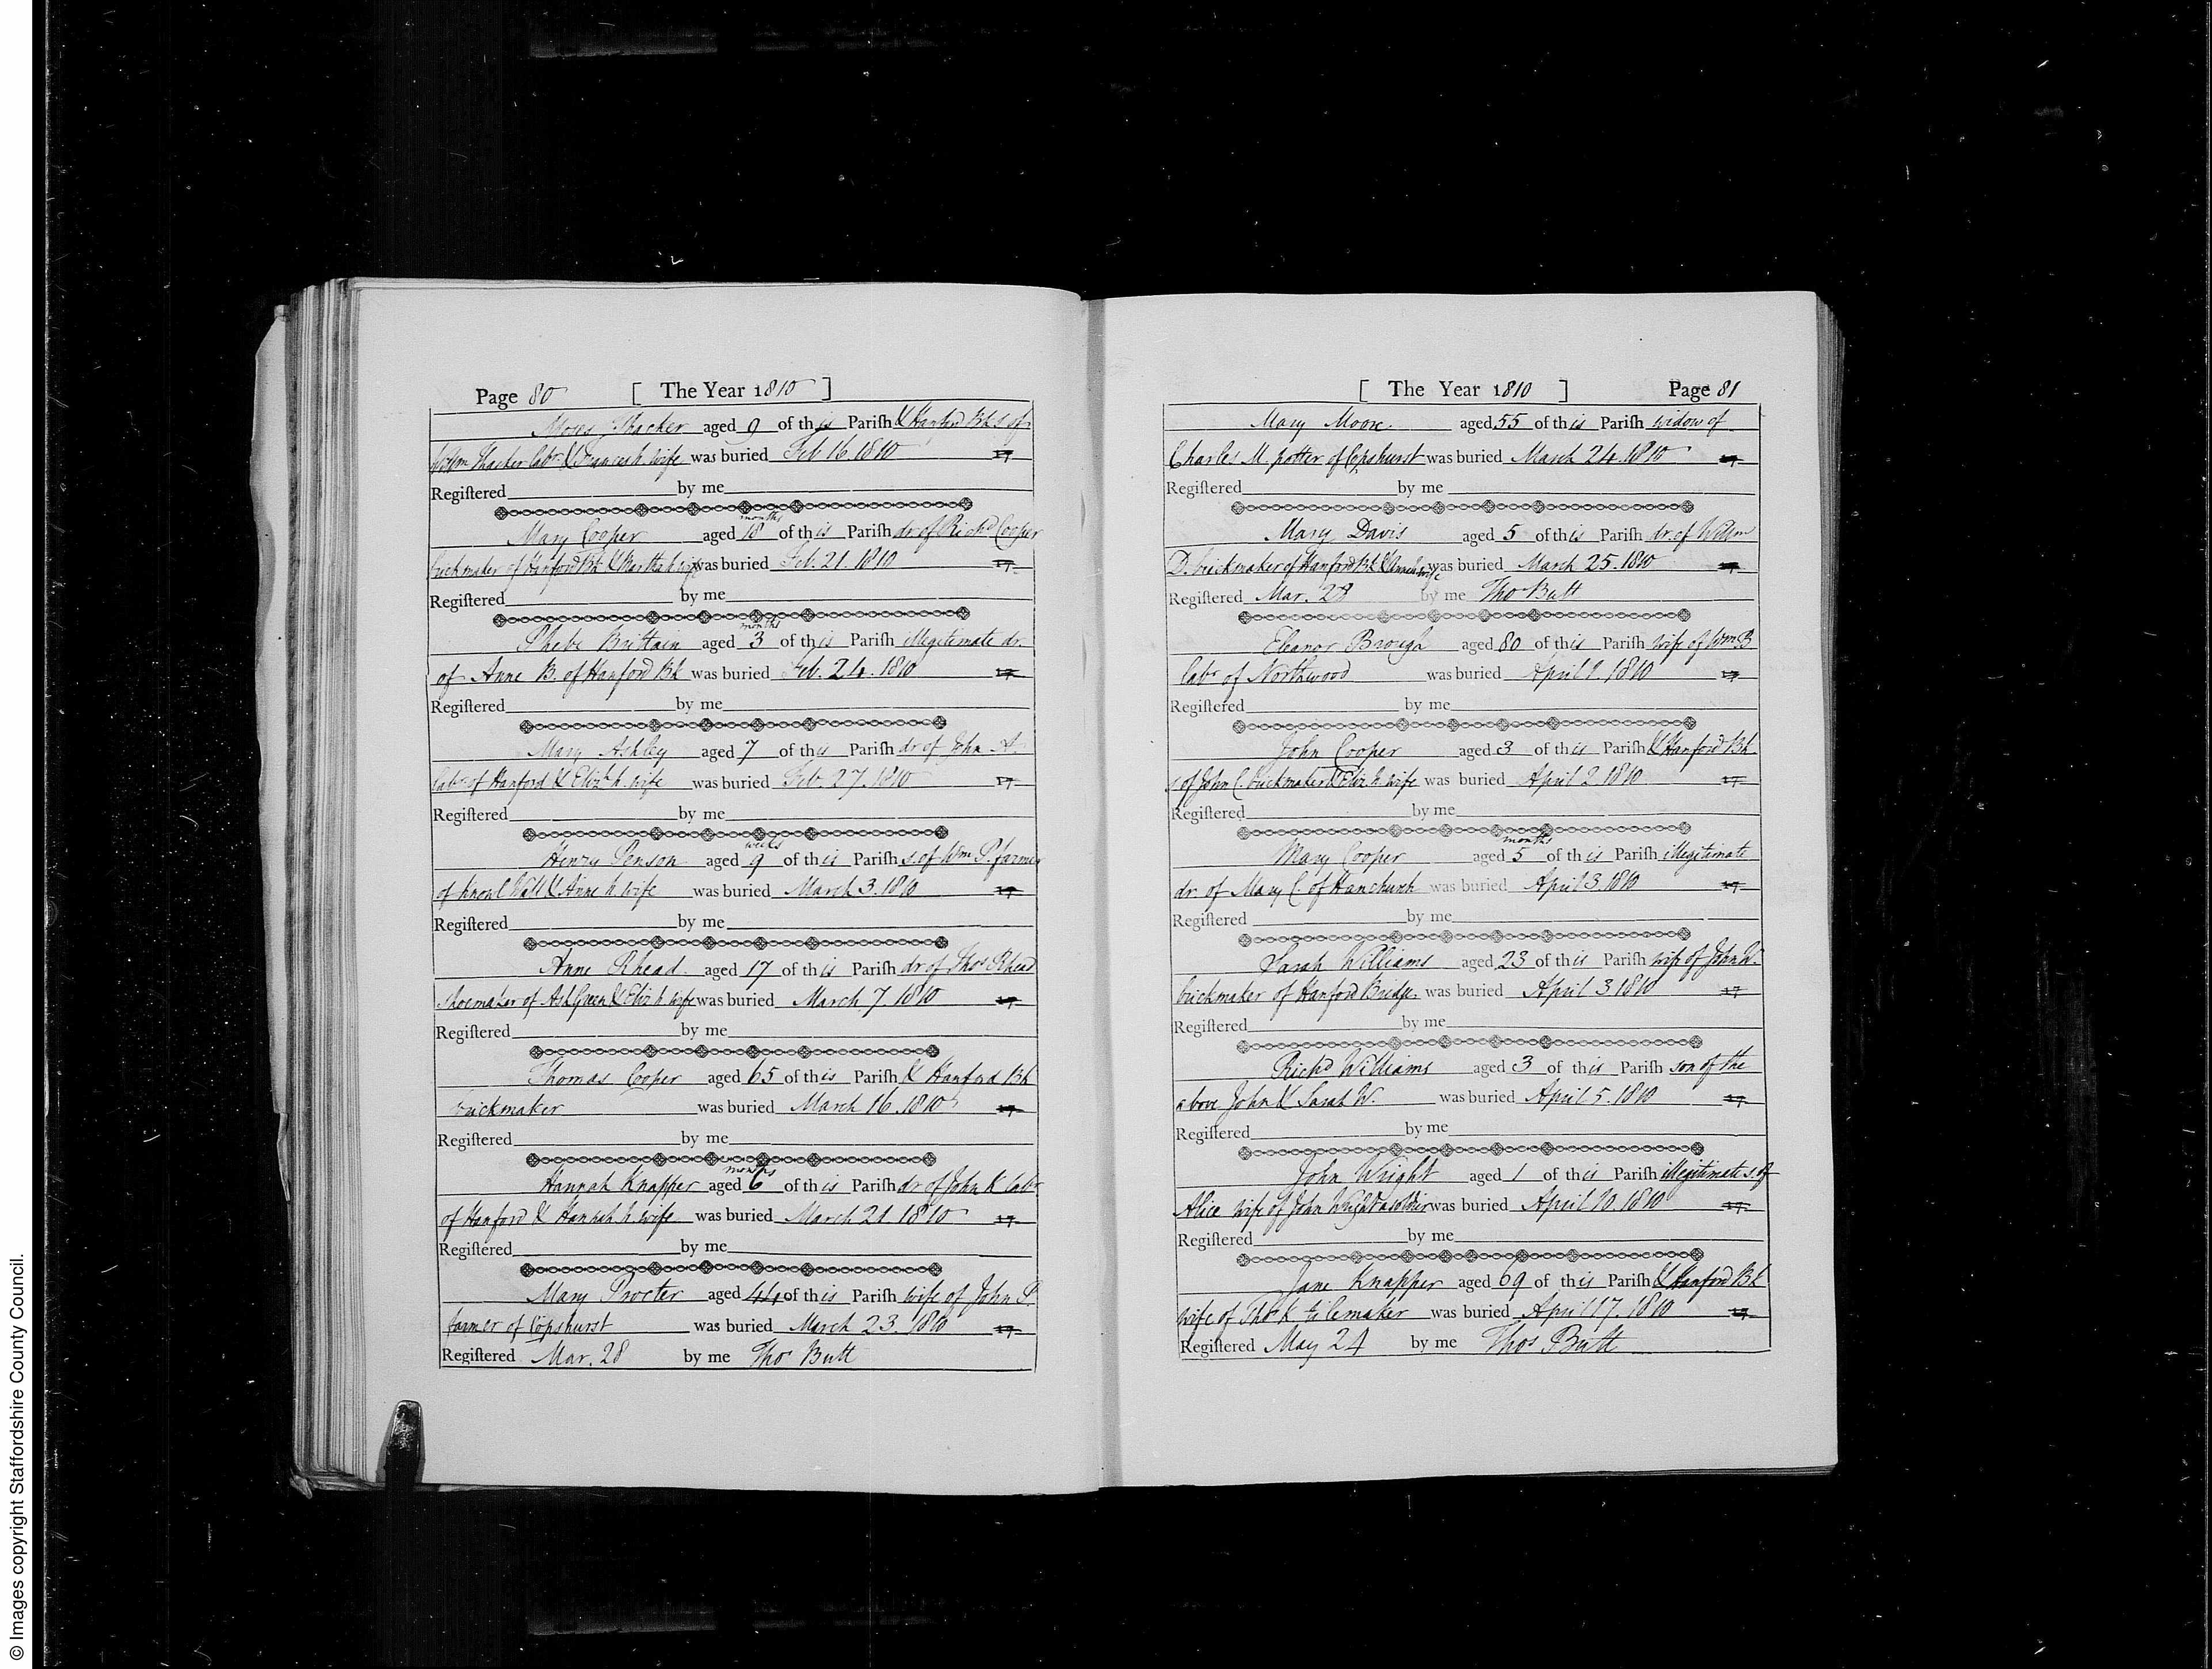 Page 80 [ The Year 1810 ]
Moses Thacker aged 9 of this Parish & Hanford Bk s. of
Willm Thacker labr. & Frances h. wife was buried Feb. 16. 1810
Registered by me
months
Mary Cooper aged 18 of this Parish dr. of Richd Cooper
brickmaker of Hanford Bk & Martha h. wife was buried Feb. 21. 1810
Registered by me
months
Phebe Brittain aged 3 of this Parish illegitimate dr.
of Anne B. of Hanford Bk was buried Feb. 24. 1810
Registered by me
Mary Ashley aged 7 of this Parish dr. of John A.
labr. of Hanford & Elizth h. wife was buried Feb. 27. 1810
Registered by me
weeks
Henry Penson aged 9 of this Parish s. of Wm P. farmer
of Knowl Wall & Anne h. wife was buried March 3. 1810
Registered by me
Anne Rhead aged 17 of this Parish dr. of Thos Rhead
shoemaker of Ash Green & Eliz h. wife was buried March 7 1810
Registered by me
Thomas Cooper aged 65 of this Parish & Hanford Bk
brickmaker was buried March 16. 1810
Registered by me
months
Hannah Knapper aged 6 of this Parish dr. of John K. labr
of Hanford & Hannah h. wife was buried March 21. 1810
Registered by me
Mary Procter aged 44 of this Parish wife of John P.
farmer of Copshurst was buried March 23. 1810
Registered Mar. 28 by me Thos Butt
[ The Year 1810 ] Page 81
Mary Moore aged 55 of this Parish widow of
Charles M. potter of Copshurst was buried March 24. 1810
Registered by me
Mary Davis aged 5 of this Parish dr. of Willm
D. brickmaker of Hanford Bk & h. wife was buried March 25. 1810
Registered Mar. 28 by me Thos Butt
Eleanor Brough aged 80 of this Parish wife of Wm B
labr. of Northwood was buried April 1. 1810
Registered by me
John Cooper aged 3 of this Parish & Hanford Bk
s. of John C. brickmaker & Eliz. h. wife was buried April 2. 1810
Registered by me
months
Mary Cooper aged 5 of this Parish illegitimate
dr. of Mary C. of Hanchurch was buried April 3. 1810
Registered by me
Sarah Williams aged 23 of this Parish wife of John W.
brickmaker of Hanford Bridge was buried April 3 1810
Registered by me
Richd Williams aged 3 of this Parish son of the
above John & Sarah W. was buried April 5. 1810
Registered by me
John Wright aged 1 of this Parish illegitimate s. of
Alice wife of John Wright a soldier was buried April 10. 1810
Registered by me
Jane Knapper aged 69 of this Parish & Hanford Bk
wife of Thos K. tilemaker was buried April 17. 1810
Registered May 24 by me Thos Butt
© Images copyright Staffordshire County Council.